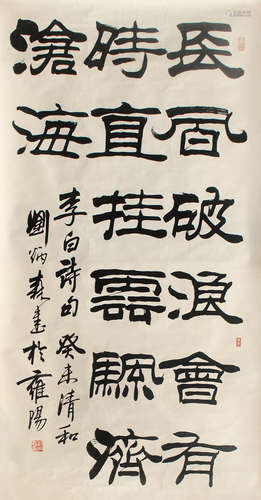 長風破浪會有
時直挂雲飄濟
滄海
李白詩句 癸未清和
劉炳森書於雍陽